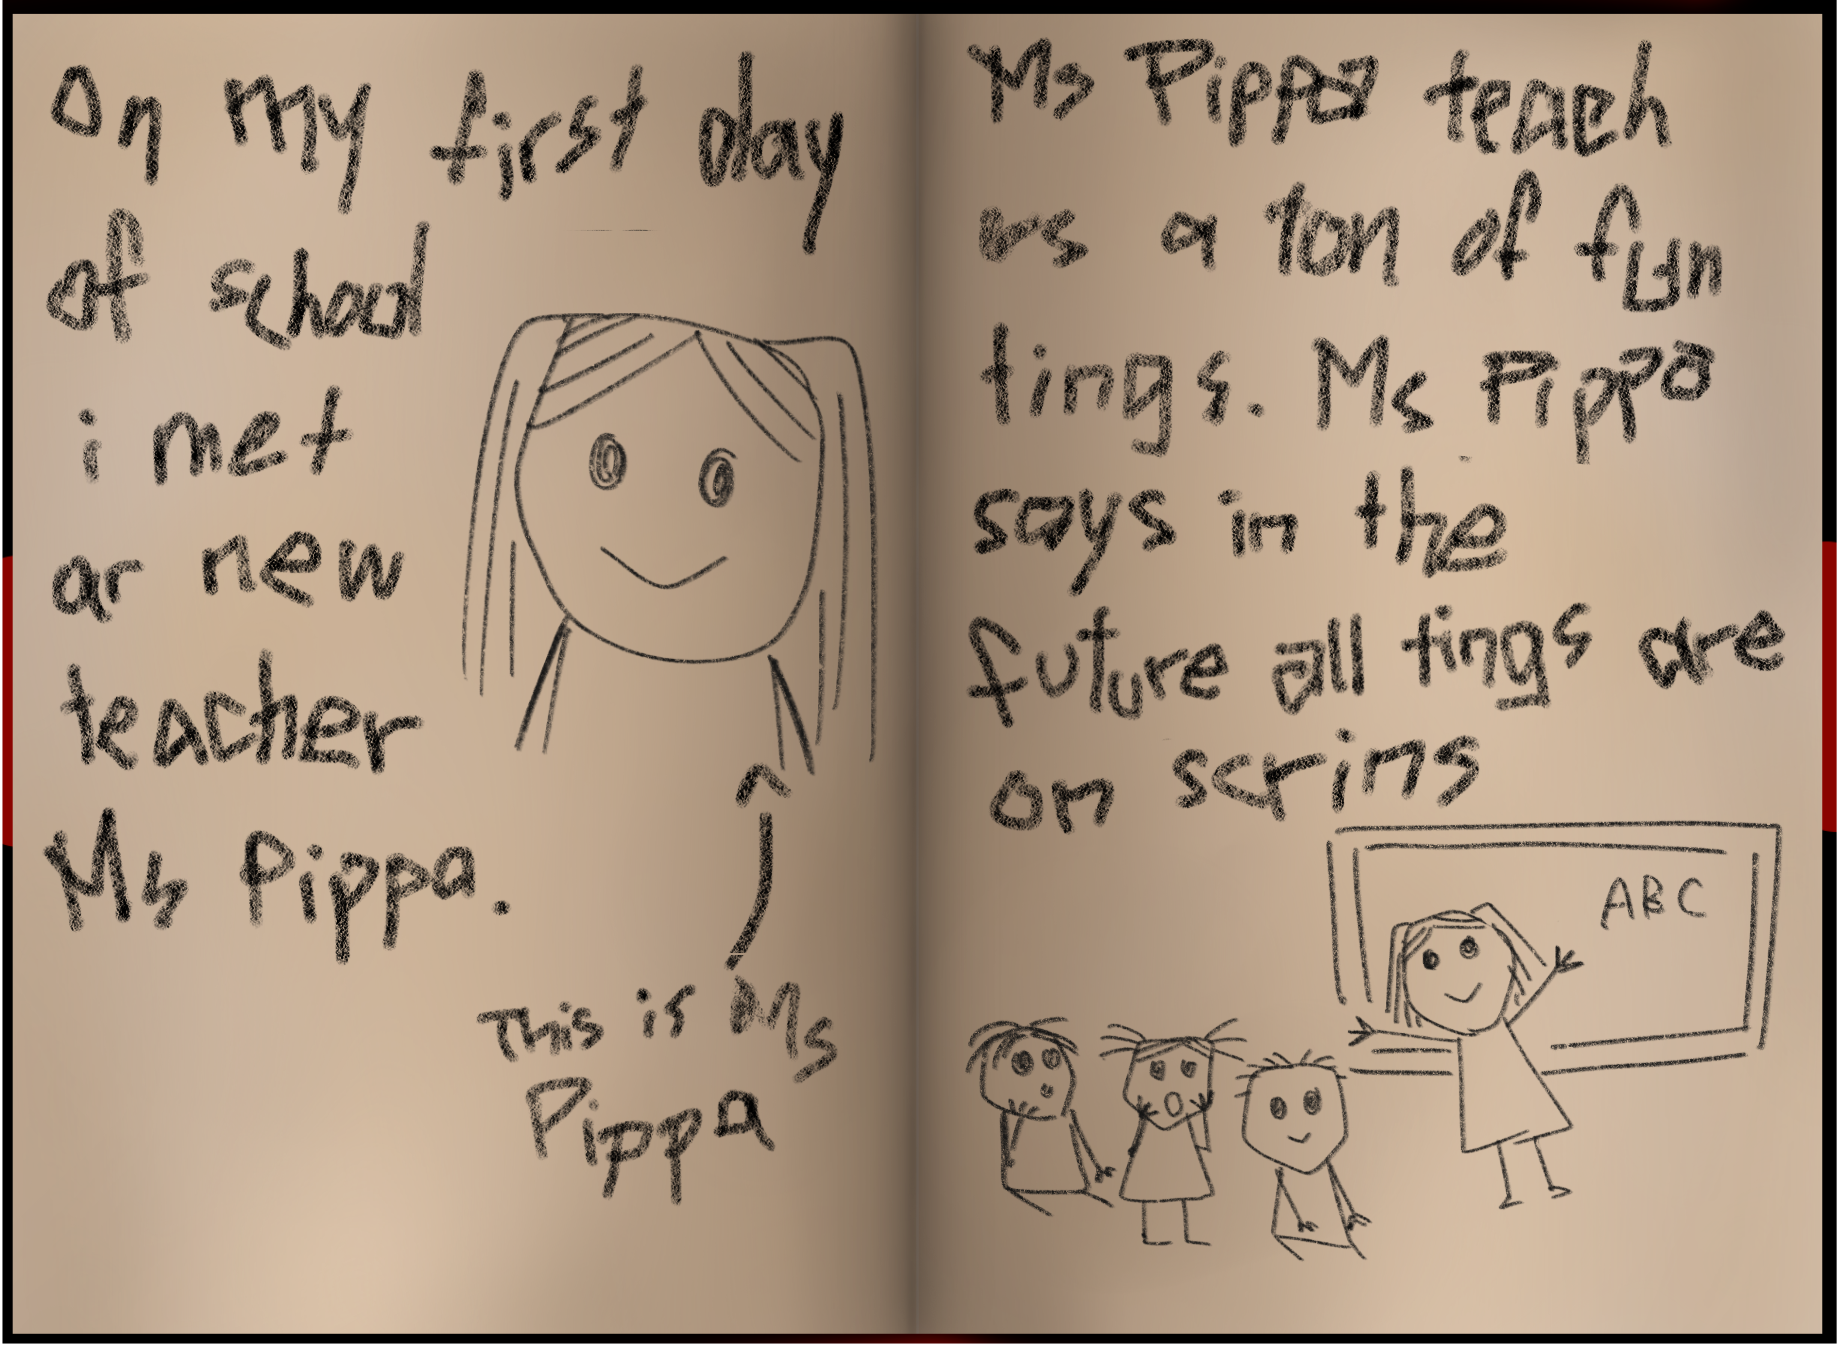 On my first day
of school
i met
ar new
teacher
Ms Pippa.
This is Ms
Pippa
Ms Pippa teach
us a ton of fun
tings. Ms Pippa
says in the
future all tings are
on scrins
ABC